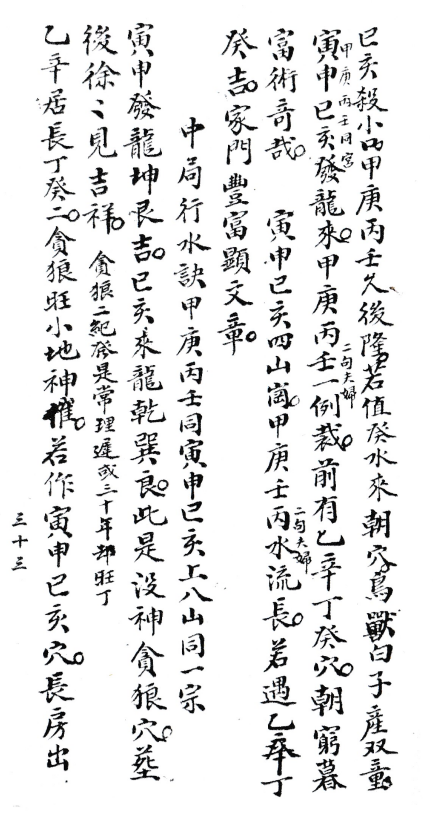 巳亥殺小口甲庚丙壬久後隆若值癸水來朝穴鳥獸白子產双童
甲庚丙壬同宮
寅申巳亥發龍來甲庚丙壬一例裁前有乙辛丁癸穴朝窮暮
二句夫婦
富術奇哉　寅申巳亥四山崗甲庚壬丙水流長若遇乙辛丁
二句夫婦
癸吉家門豐富顯文章
中局行水訣甲庚丙壬同寅申巳亥上八山同一宗
寅申發龍坤艮吉巳亥來龍乾巽良此是没神貪狼穴塟
後徐々見吉祥　貪狼二紀發是常理遲或三十年却旺丁
乙辛居長丁癸二貪狼旺小地神催若作寅申巳亥穴長房出
三十三